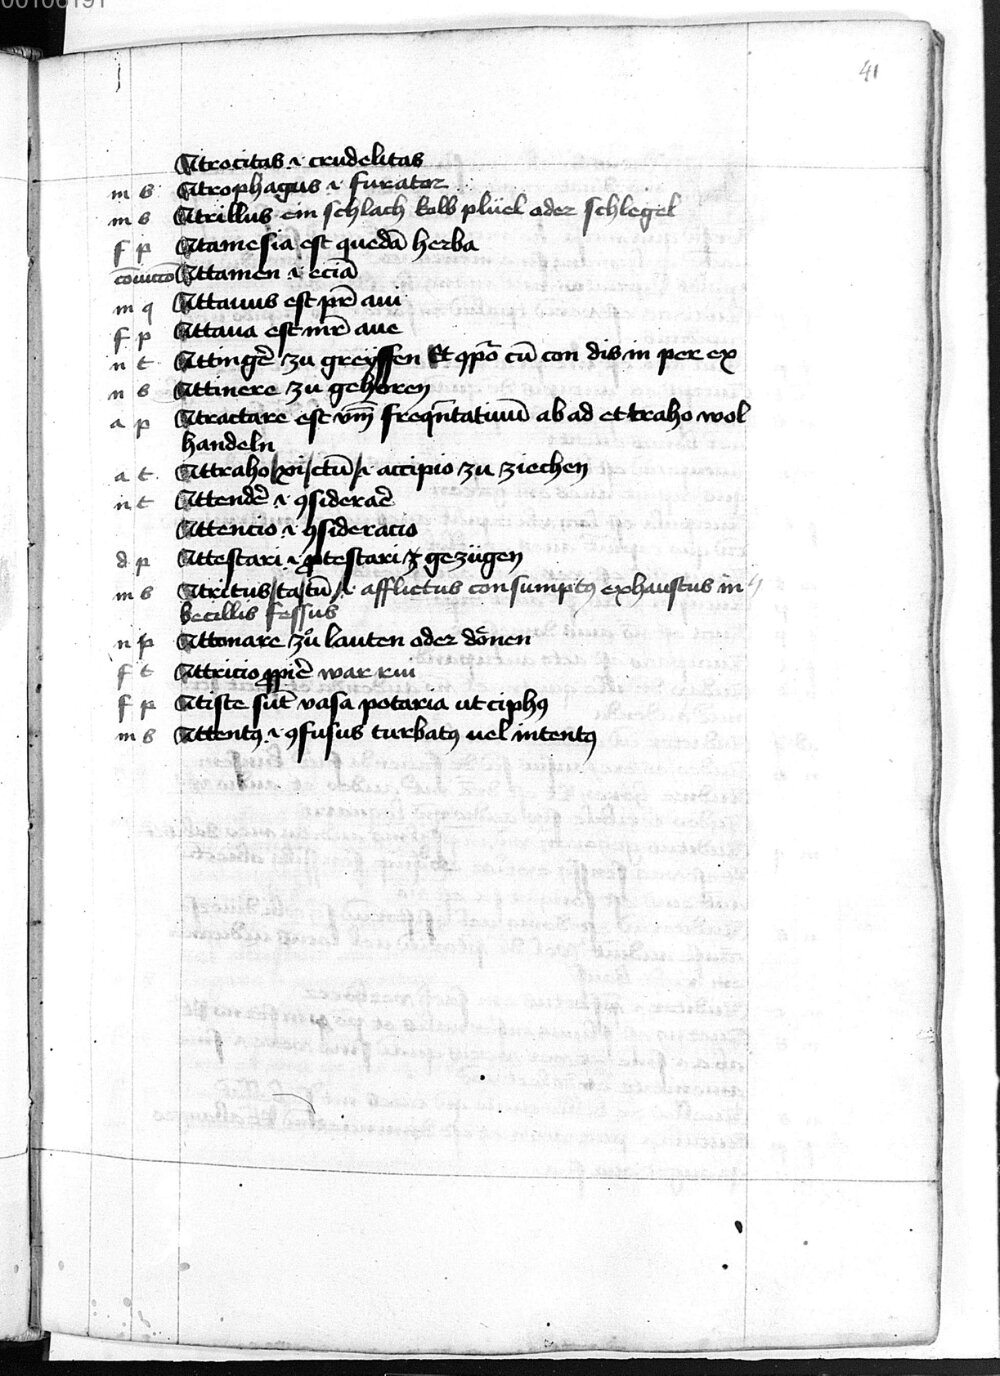 00106191
41
Atrocitas .i. crudelitas
m s Atrophagus .i. furator
m s Atrillus ein schlach kolb plüel oder schlegel
f p Atamesia est quedā herba
Attamen .i. eciā
m q Attavus est pr̄ avi
f p Attava est mr̄ ave
n t Attingēr zu greyffen Et 9pō cū con dis in per ex
n s Attinere zu gehören
a p Atractare est vm̄ freqn̄tativū ab ad et traho wol
handeln
a t Attraho /xi/ctū/ .i. accipio zu ziechen
n t Attendēr .i. 9siderar̄e
Attencio .i. 9sideracio
d p Attestari .i. ꝓtestari ꝫ gezügen
m s Atritus /ta/tū/ .i. afflictus consumpt9 exhaustus in
becillis fessus
n p Attonare zů lauten oder dönen
f t Attricio war rui
f p Atiste sūt vasa potaria ut ciph9
m s Attent9 .i. 9fusus turbat9 vel intent9